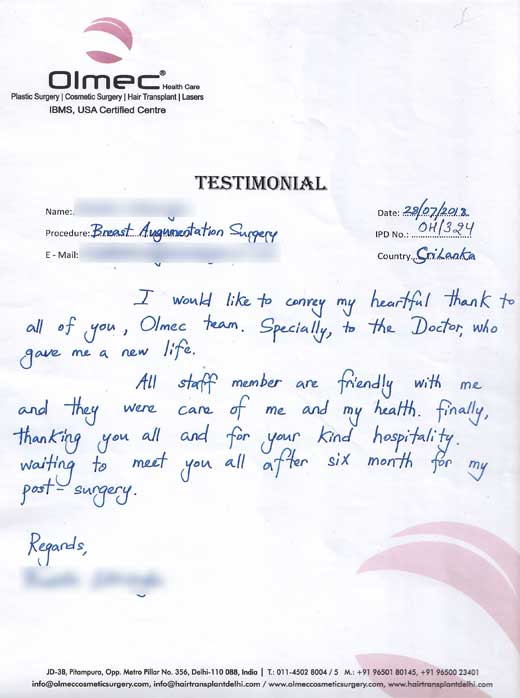 Olmec® Health Care
Plastic Surgery | Cosmetic Surgery | Hair Transplant | Lasers
IBMS, USA Certified Centre
TESTIMONIAL
Name:
Date: 28/07/2018
Procedure: Breast Augmentation Surgery
IPD No.: OH/324
E - Mail:
Country Sri Lanka
I would like to convey my heartful thank to
all of you, Olmec team. Specially, to the Doctor, who
gave me a new life.
All staff member are friendly with me
and they were care of me and my health. finally,
thanking you all and for your kind hospitality.
waiting to meet you all after six month for my
post-surgery.
Regards,
JD-38, Pitampura, Opp. Metro Pillar No. 356, Delhi-110 088, India | T.: 011-4502 8004 / 5 M.: +91 96501 80145, +91 96500 23401
info@olmeccosmeticsurgery.com, info@hairtransplantdelhi.com / www.olmeccosmeticsurgery.com, www.hairtransplantdelhi.com